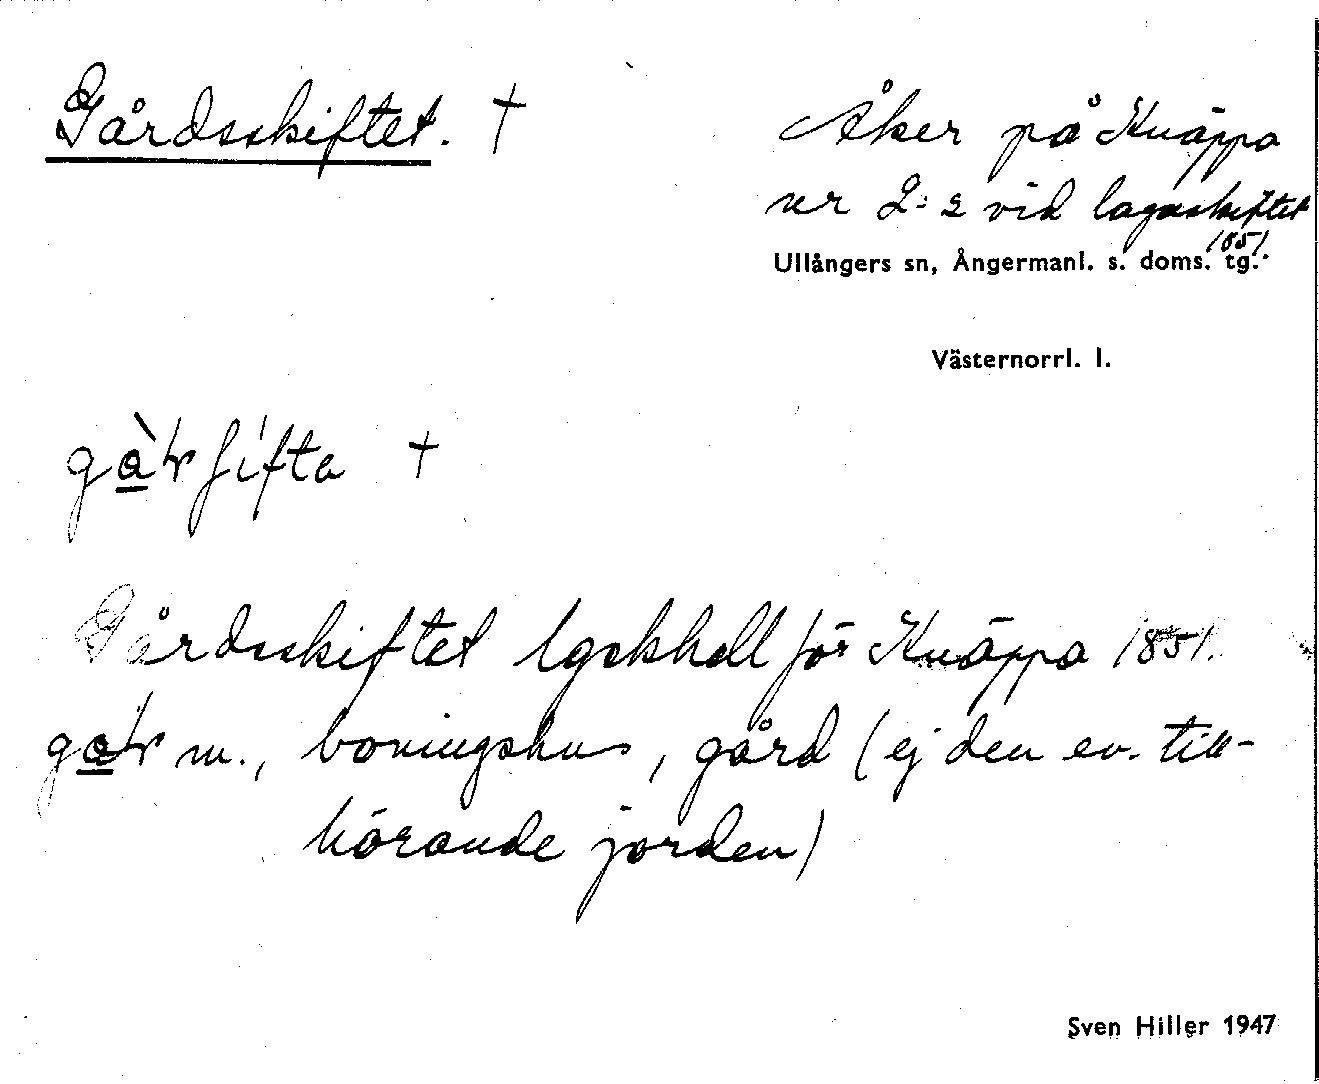 Gårdsskiftet. †
Åker på Knäppa
nr 2:2 vid lagaskiftet
1851.
Ullångers sn, Ångermanl. s. doms. tg.
Västernorrl. l.
gàrʃifta †
Gårdsskiftet lgskhdl för Knäppa 1851.
m., boningshus, gård (ej den ev. till-
hörande jorden)
Sven Hiller 1947